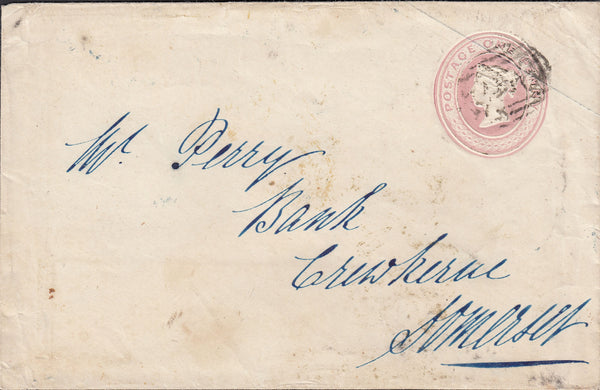 POSTAGE
Mr. Perry
Bank
Crewkerne
Somerset